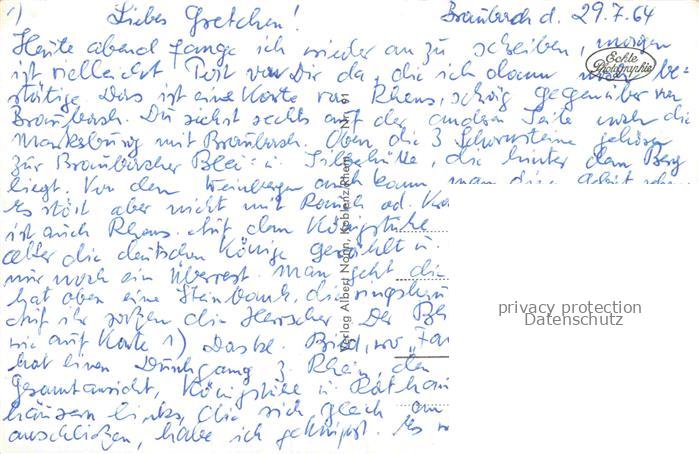 1) Liebes Gretchen! Braubach d. 29.7.64
Heute abend fange ich wieder an zu schreiben, morgen
ist vielleicht Post von Dir da, die ich dann noch be=
Echte Photographie
stätige. Das ist eine Karte von Rhens, schräg gegenüber von
Braubach. Du siehst rechts auf der anderen Seite noch die
Marksburg mit Braubach. Oben die 3 Schornsteine gehören
zur Braubacher Blei= u. Silberhütte, die hinter dem Berg
liegt. Von den Weinbergen auch kann man die
Es stört aber nicht mit Rauch od.
ist auch Rhens. Auf dem Königstuhl
die deutschen Könige gewählt u.
nur noch ein Überrest. Man geht die
hat oben eine Steinbank, die ringsherum
Auf ihr saßen die Herrscher. Der
wie auf Karte 1) Dasse. Bild, wo
hat einen Durchgang z. Rhein, den
Gesamtansicht, Königstuhl u. Rathaus
häusern links, die sich gleich an
anschließen, habe ich geknipst. Es
Verlag Albert Nohn, Koblenz/Rhein Nr. 91
privacy protection
Datenschutz